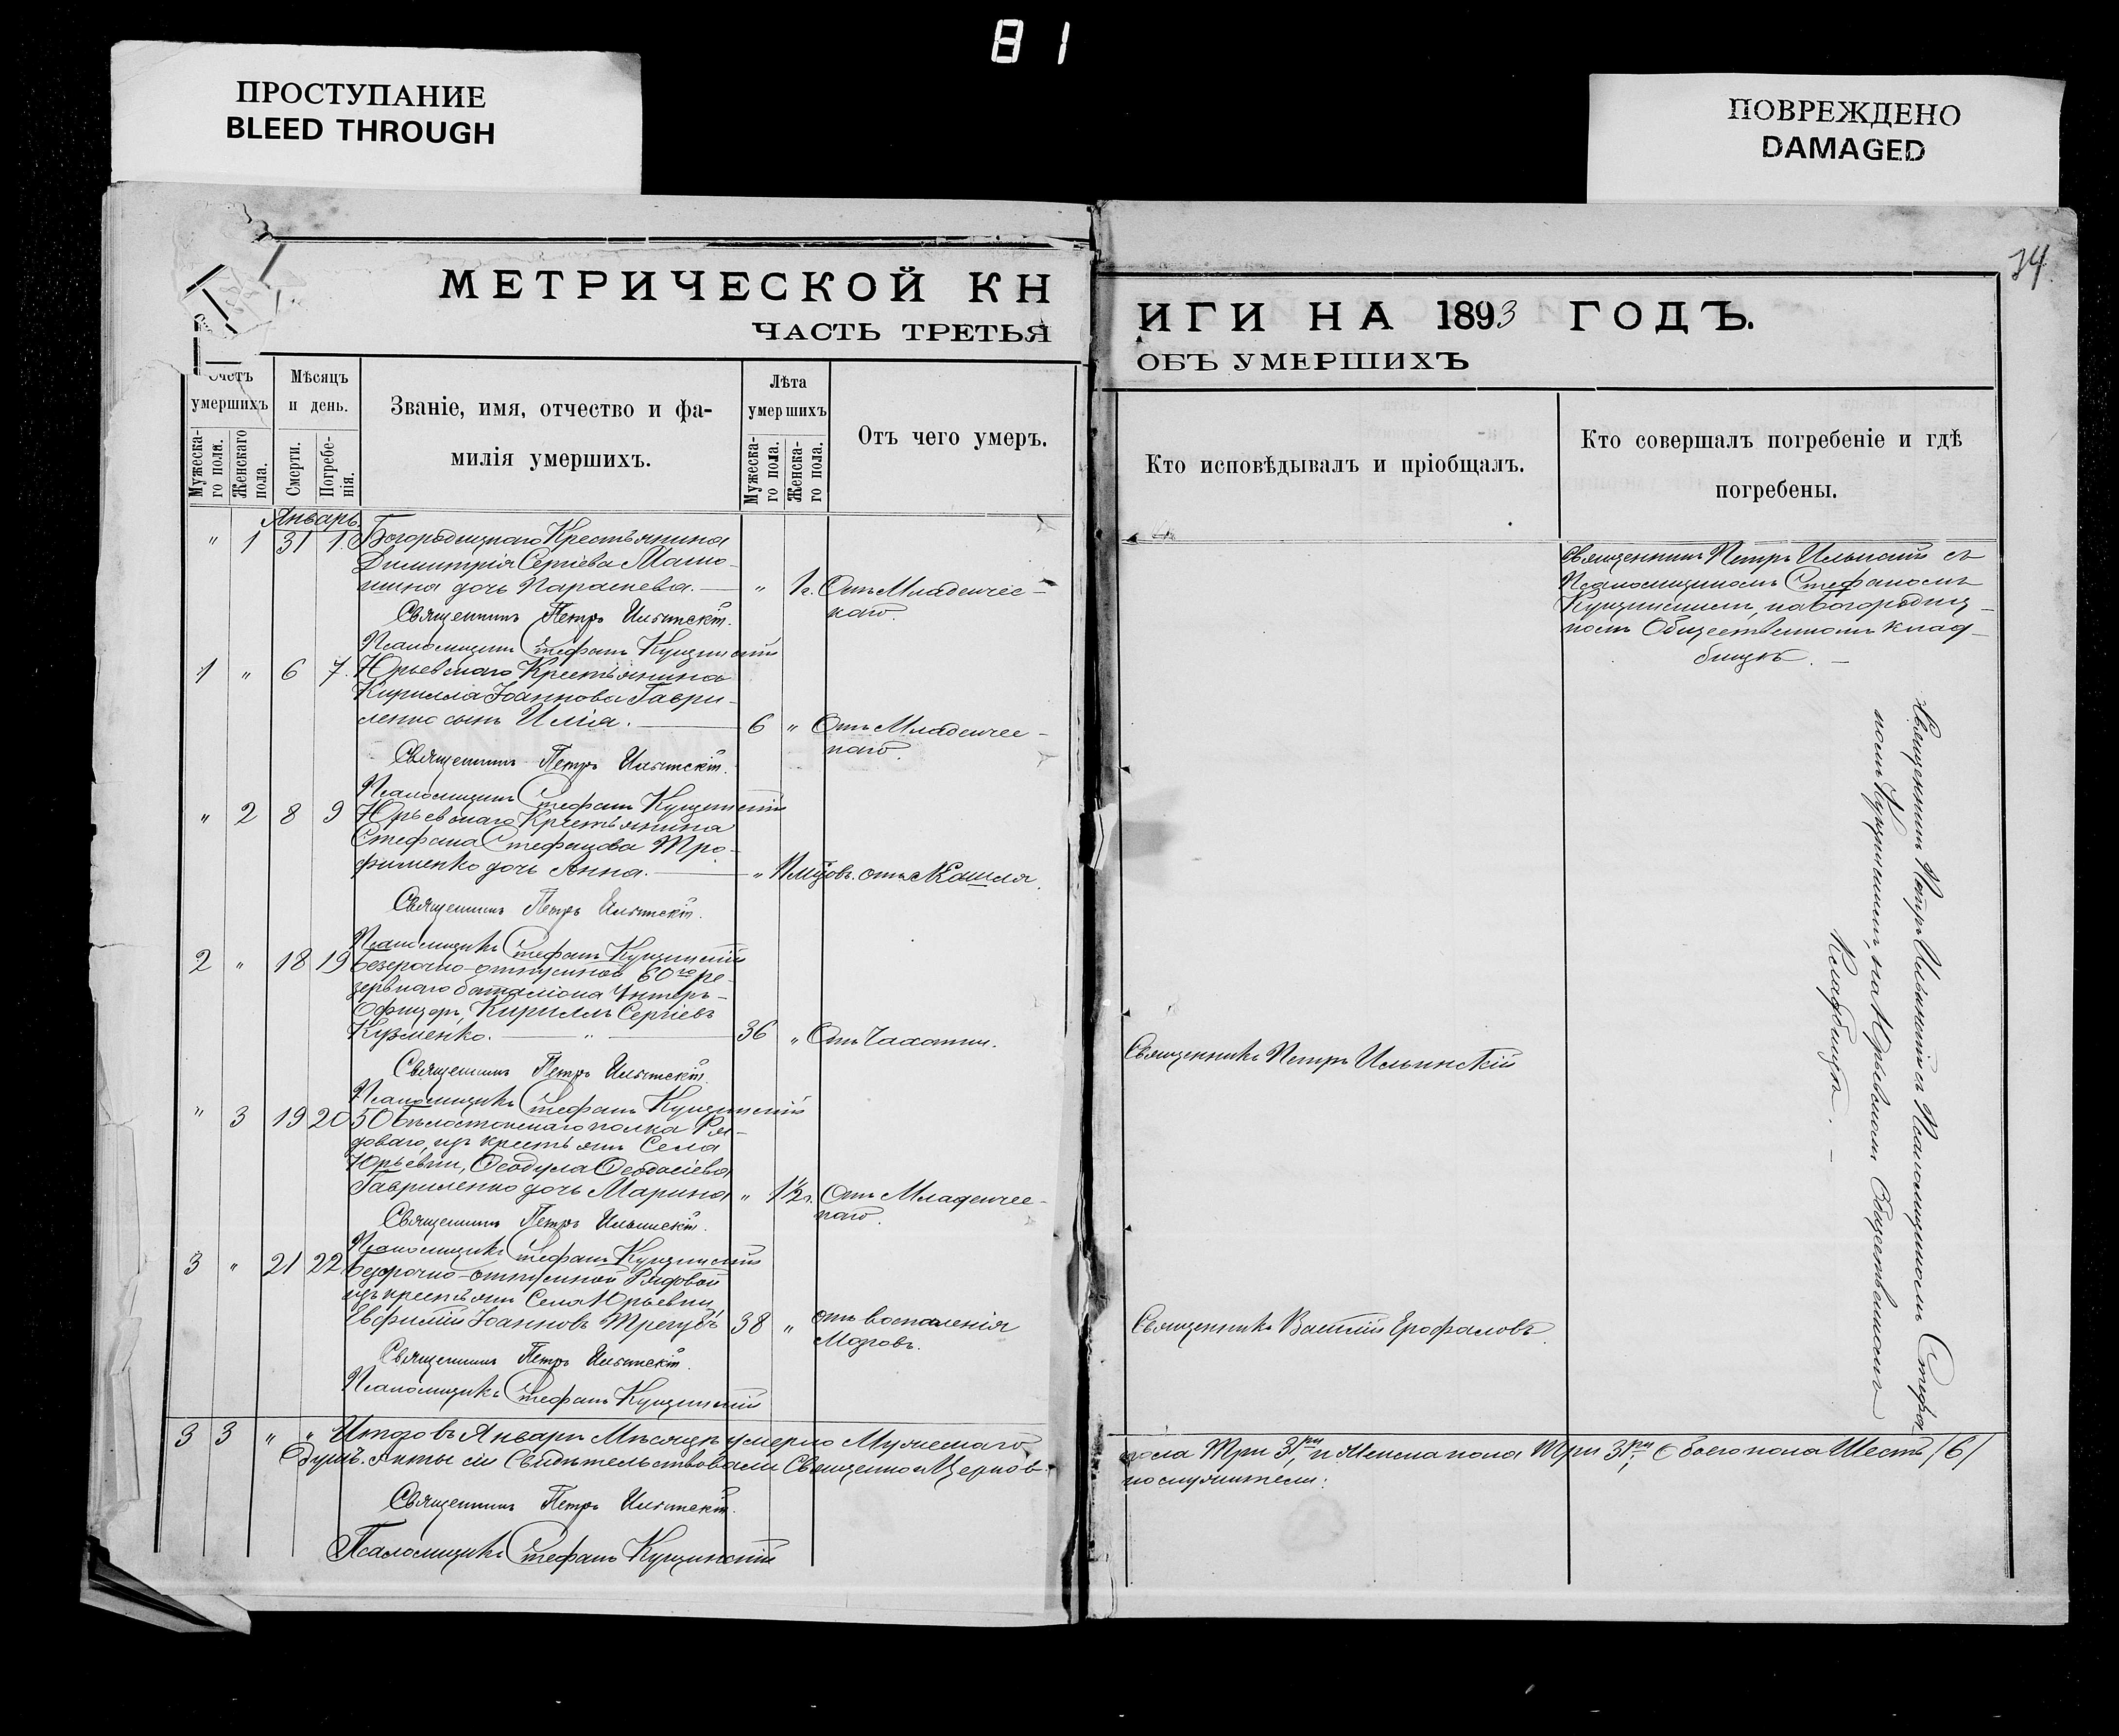 81
ПРОСТУПАНИЕ
BLEED THROUGH
ПОВРЕЖДЕНО
DAMAGED
МЕТРИЧЕСКОЙ КН
ЧАСТЬ ТРЕТЬЯ
Счетъ умершихъ
Мужеска-
го пола.
Женскаго
пола.
Мѣсяцъ
и день.
Смерти.
Погребе-
нія.
Званіе, имя, отчество и фа-
милія умершихъ.
Лѣта
умершихъ
Мужеска-
го пола.
Женска-
го пола.
Отъ чего умеръ.
Январь
" 1 31 1. Богородицкаго Крестьянина
Димитрія Сергіева
дочь Параскева. — " 1 г. Отъ Младенчес-
каго.
Священникъ Петръ Ильинскій.
Псаломщикъ Стефанъ
1 " 6 7. Юрьевскаго Крестьянина
Кирилла Іоаннова Гаври-
ленко сынъ Илія. — 6 " Отъ Младенчес-
каго.
Священникъ Петръ Ильинскій.
Псаломщикъ Стефанъ
" 2 8 9 Юрьевскаго Крестьянина
Стефана Стефанова Тро-
фименко дочь Анна. — " отъ Кашля.
Священникъ Петръ Ильинскій.
Псаломщикъ Стефанъ
2 " 18 19 безсрочно-отпускной 60го ре-
зервнаго баталіона Унтеръ-
Офицеръ, Кириллъ Сергіевъ
Кузменко. — " — 36 " Отъ Чахотки.
Священникъ Петръ Ильинскій.
Псаломщикъ Стефанъ
" 3 19 20 50 Бѣлостокскаго полка Ря-
доваго, изъ крестьянъ Села
Юрьевки, Ѳеодула Ѳеодосіева
Гавриленко дочь Марина " 1½ г. Отъ Младенчес-
каго.
Священникъ Петръ Ильинскій.
Псаломщикъ Стефанъ
3 " 21 22 безсрочно-отпускной Рядовой
изъ крестьянъ Села Юрьевки,
Евфимій Іоанновъ Трегубъ 38 " отъ воспаленія
Мозговъ.
Священникъ Петръ Ильинскій.
Псаломщикъ Стефанъ
3 3 " " Итого въ Январѣ Мѣсяцѣ умерло Мужескаго
душъ. Акты сіи Свидѣтельствовали Священно и Церков-
Священникъ Петръ Ильинскій.
Псаломщикъ Стефанъ
ИГИ НА 1893 ГОДЪ.
ОБЪ УМЕРШИХЪ
Кто исповѣдывалъ и пріобщалъ.
Кто совершалъ погребеніе и гдѣ
погребены.
Священникъ Петръ Ильинскій съ
Псаломщикомъ Стефаномъ
на Богородиц-
комъ Общественномъ клад-
бищѣ. —
Священникъ Петръ Ильинскій съ Псаломщикомъ Стефа-
на Юрьевскомъ Общественномъ
Кладбищѣ. —
Священникъ Петръ Ильинскій
Священникъ Василій
пола Три 3 ри, и Женска пола Три 3 ри, Обоего пола Шесть /6/
но служители: